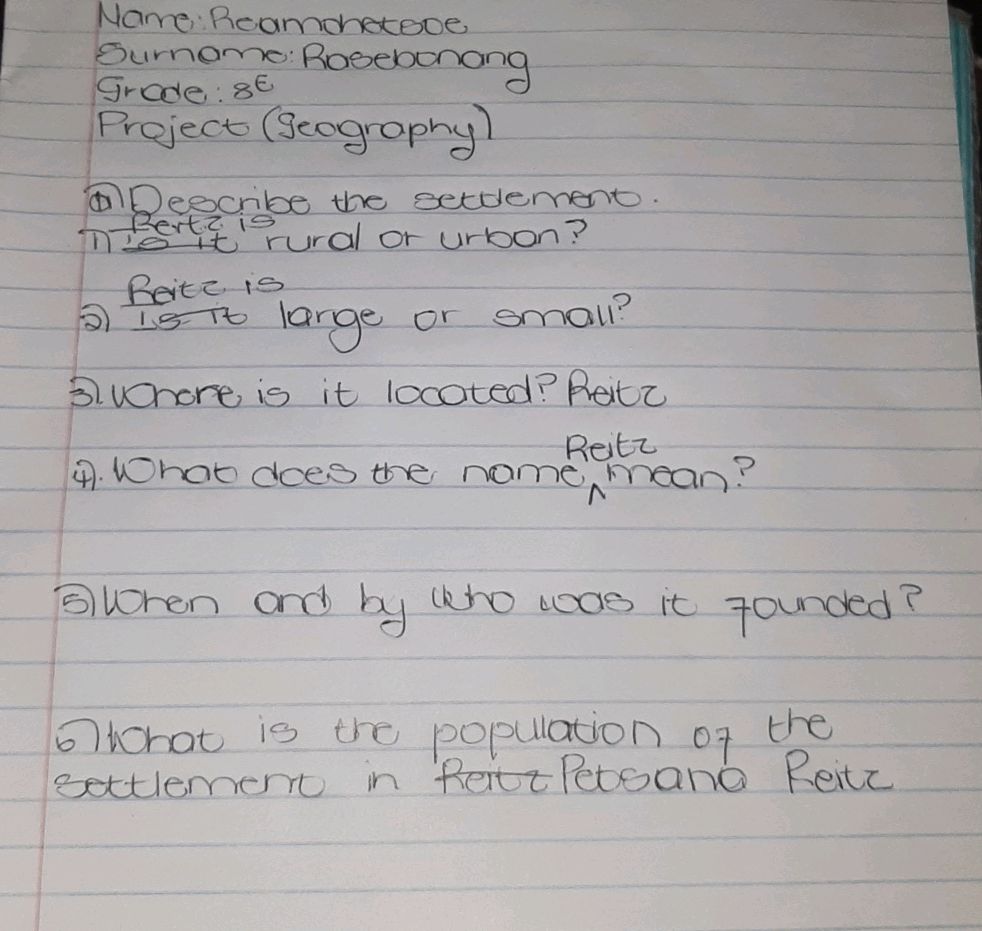 Name: Reamohetsoe
Surname: Rasebonang
Grade: 8E
Project (Geography)
a) Describe the settlement.
Reitz is
1) is it rural or urban?
Reitz is
2) is it large or small?
3). Where is it located? Reitz
Reitz
4). What does the name ^ mean?
5) When and by who was it founded?
6) What is the population of the
settlement in Reitz Petsana Reitz